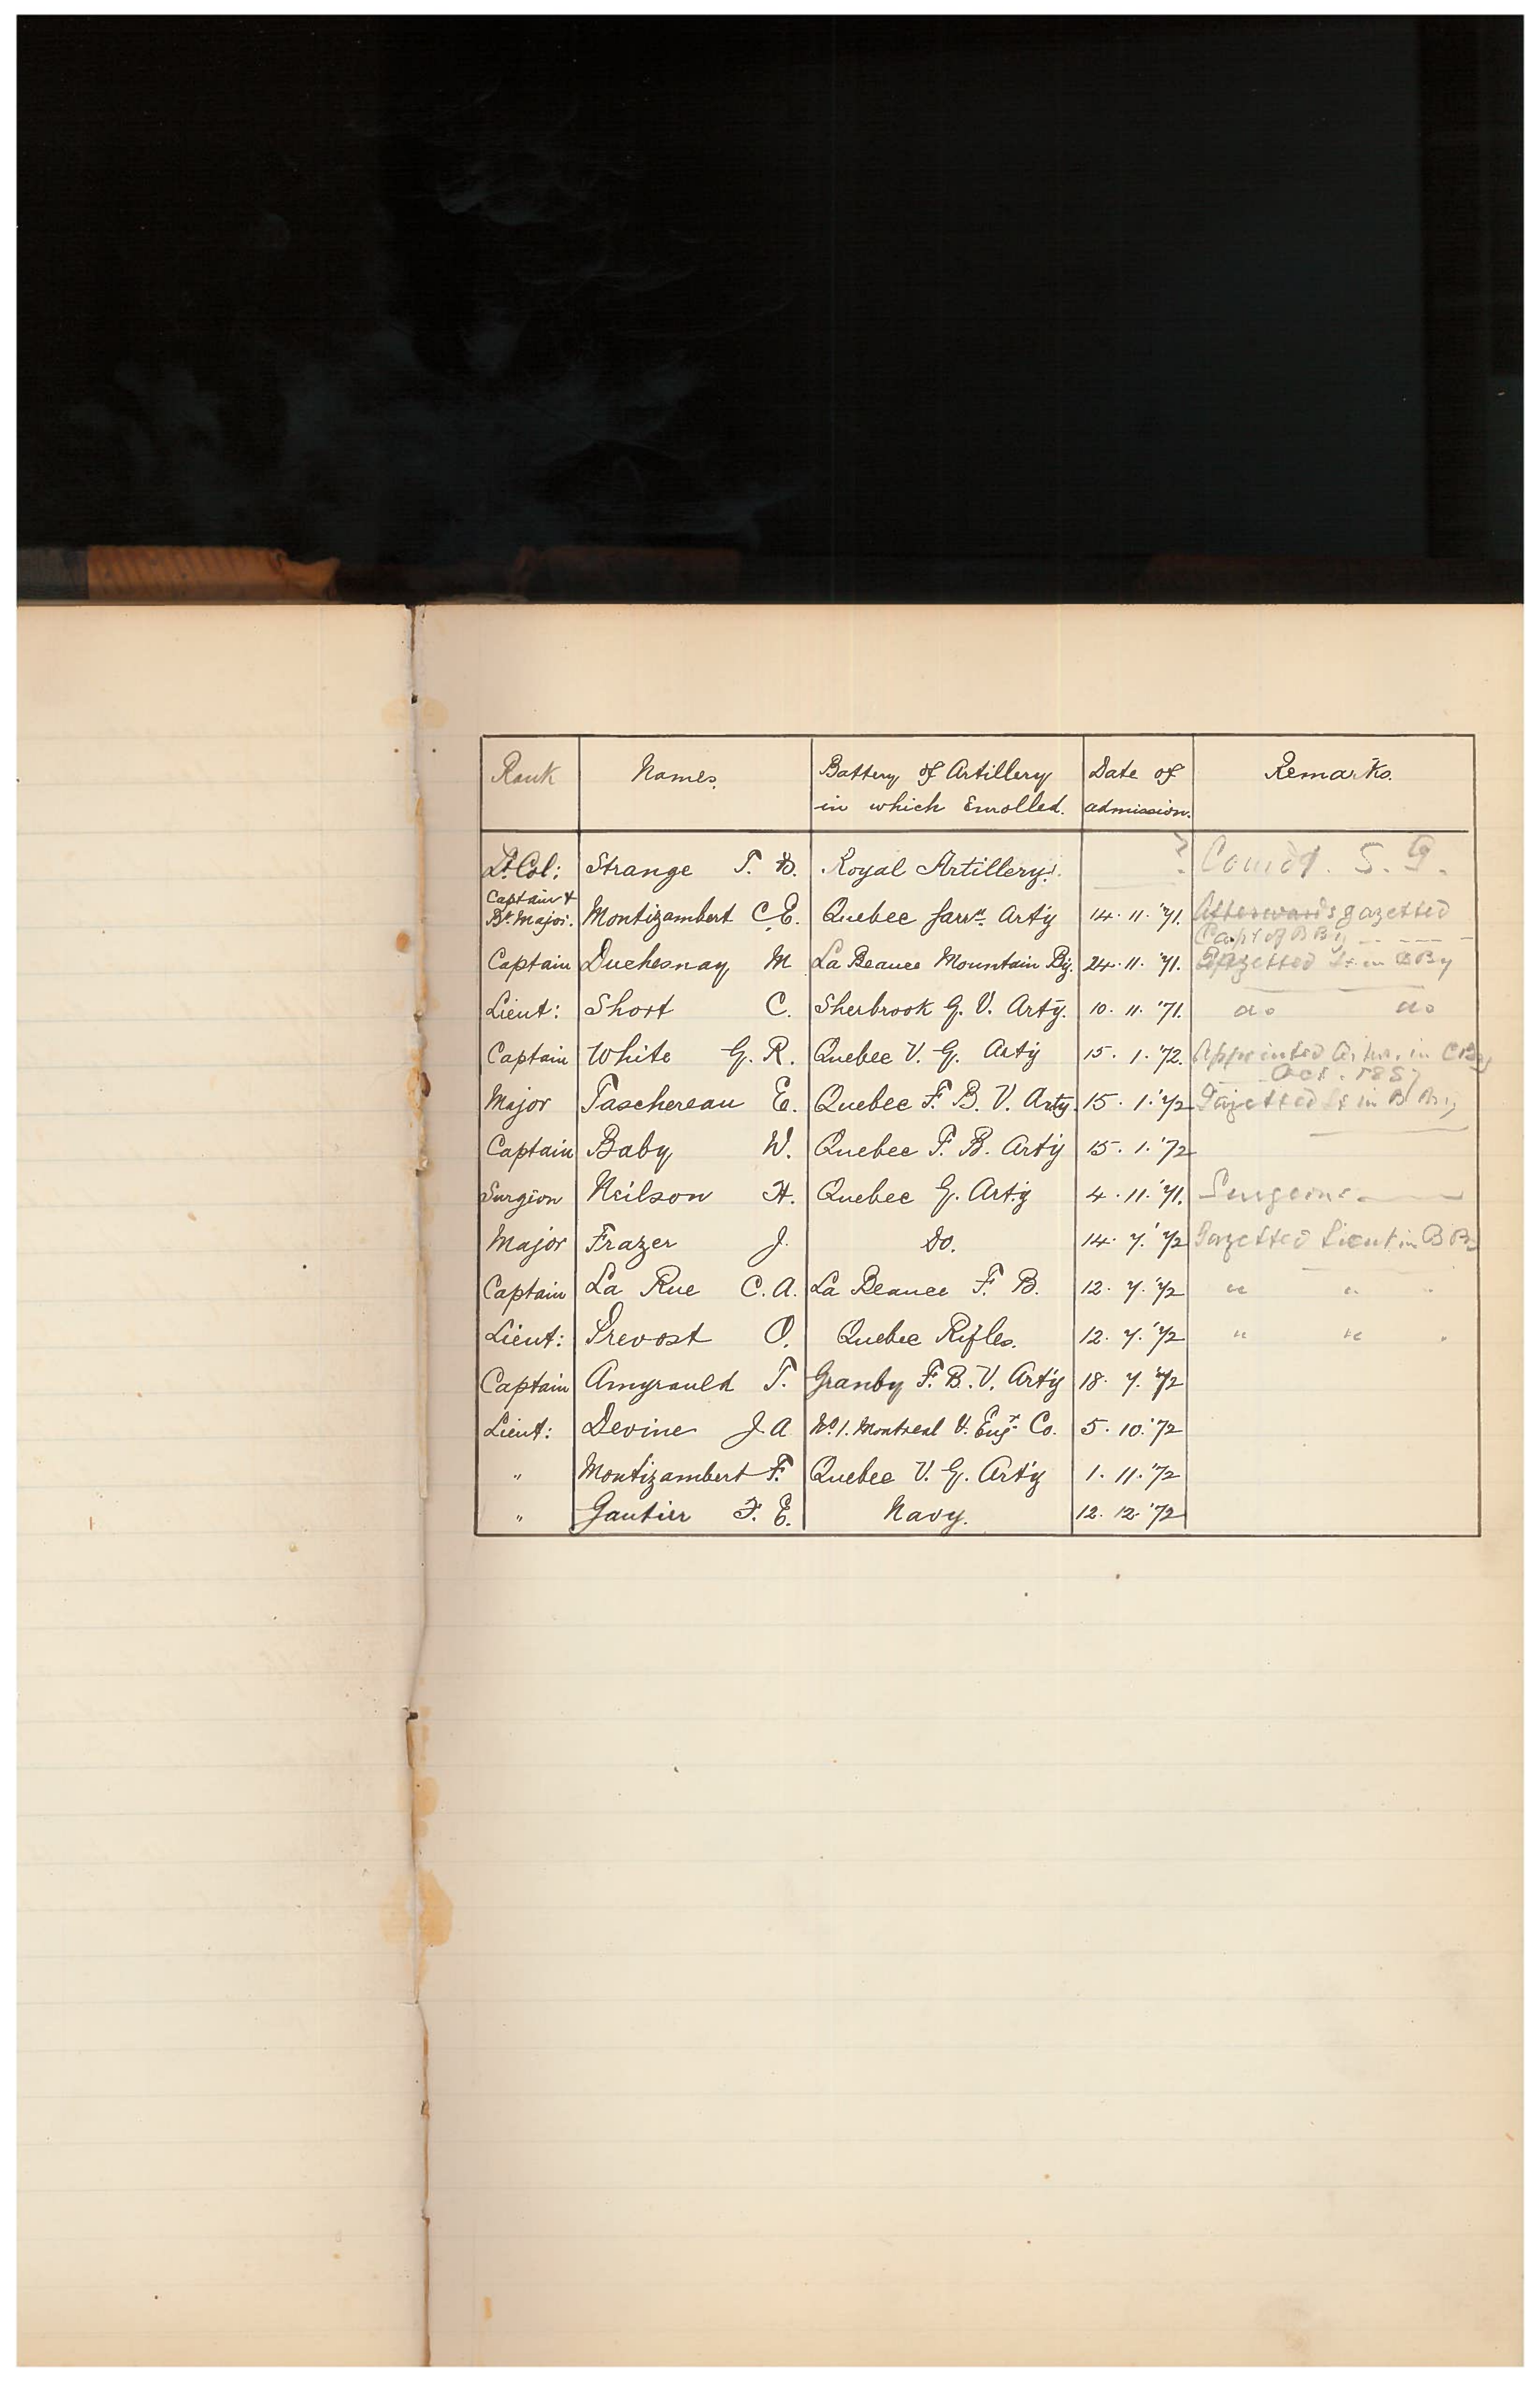 Rank Names. Battery of Artillery Date of Remarks.
in which Enrolled. admission.
Lt. Col: Strange T. B. Royal Artillery. ? Comdt. S. G.
Captain &
Bt. Major. Montizambert C.E. Quebec Garrn. Arty 14. 11. '71. Afterwards gazetted
Capt of B By
Captain Duchesnay M La Beauce Mountain By. 24. 11. '71. Gazetted Lt in B By
Lieut: Short C. Sherbrook G. V. Arty. 10. 11. '71. do do
Captain White G. R. Quebec V. G. Arty 15. 1. '72. Appointed in C By
Oct. 1887
Major Taschereau E. Quebec F. B. V. Arty. 15. 1. '72 Gazetted Lt in B
Captain Baby W. Quebec F. B. Arty 15. 1. '72
Surgion Neilson H. Quebec G. Arty 4. 11. '71. Surgeon
Major Frazer J. Do. 14. 7. '72 Gazetted Lieut in B By
Captain La Rue C. A. La Beauce F. B. 12. 7. '72 " "
Lieut: Prevost O. Quebec Rifles. 12. 7. '72 " "
Captain Amyrauld T. Granby F. B. V. Arty 18. 7. '72
Lieut: Devine J. A No. 1. Montreal V. Engr. Co. 5. 10. '72
" Montizambert F. Quebec V. G. Arty 1. 11. '72
" Gautier F. E. Navy. 12. 12. '72